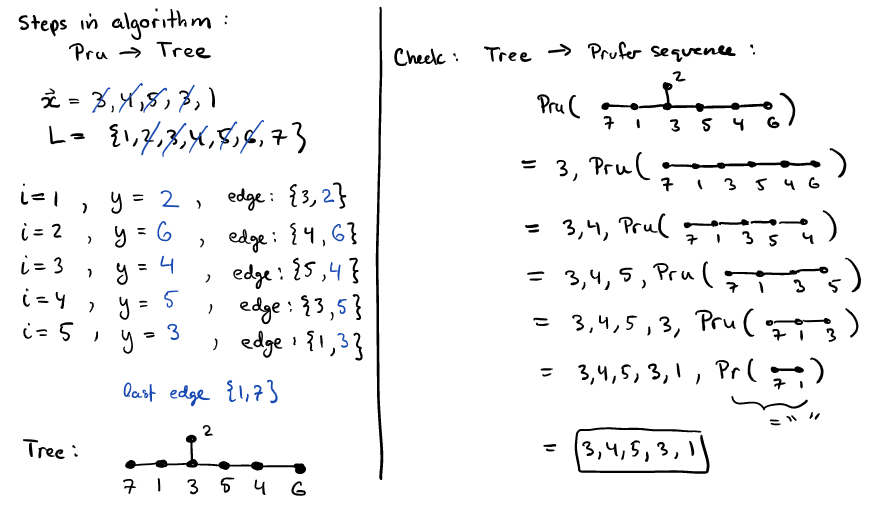 Steps in algorithm :
Pru → Tree
x⃗ = 3, 4, 5, 3, 1
L = {1, 2, 3, 4, 5, 6, 7}
i = 1 , y = 2 , edge: {3, 2}
i = 2 , y = 6 , edge: {4, 6}
i = 3 , y = 4 , edge: {5, 4}
i = 4 , y = 5 , edge: {3, 5}
i = 5 , y = 3 , edge: {1, 3}
last edge {1, 7}
Tree :
2
7 1 3 5 4 6
Check : Tree → Prufer sequence :
2
Pru( 7 1 3 5 4 6 )
= 3, Pru( 7 1 3 5 4 6 )
= 3, 4, Pru( 7 1 3 5 4 )
= 3, 4, 5, Pru( 7 1 3 5 )
= 3, 4, 5, 3, Pru( 7 1 3 )
= 3, 4, 5, 3, 1, Pr( 7 1 )
= " "
= 3, 4, 5, 3, 1